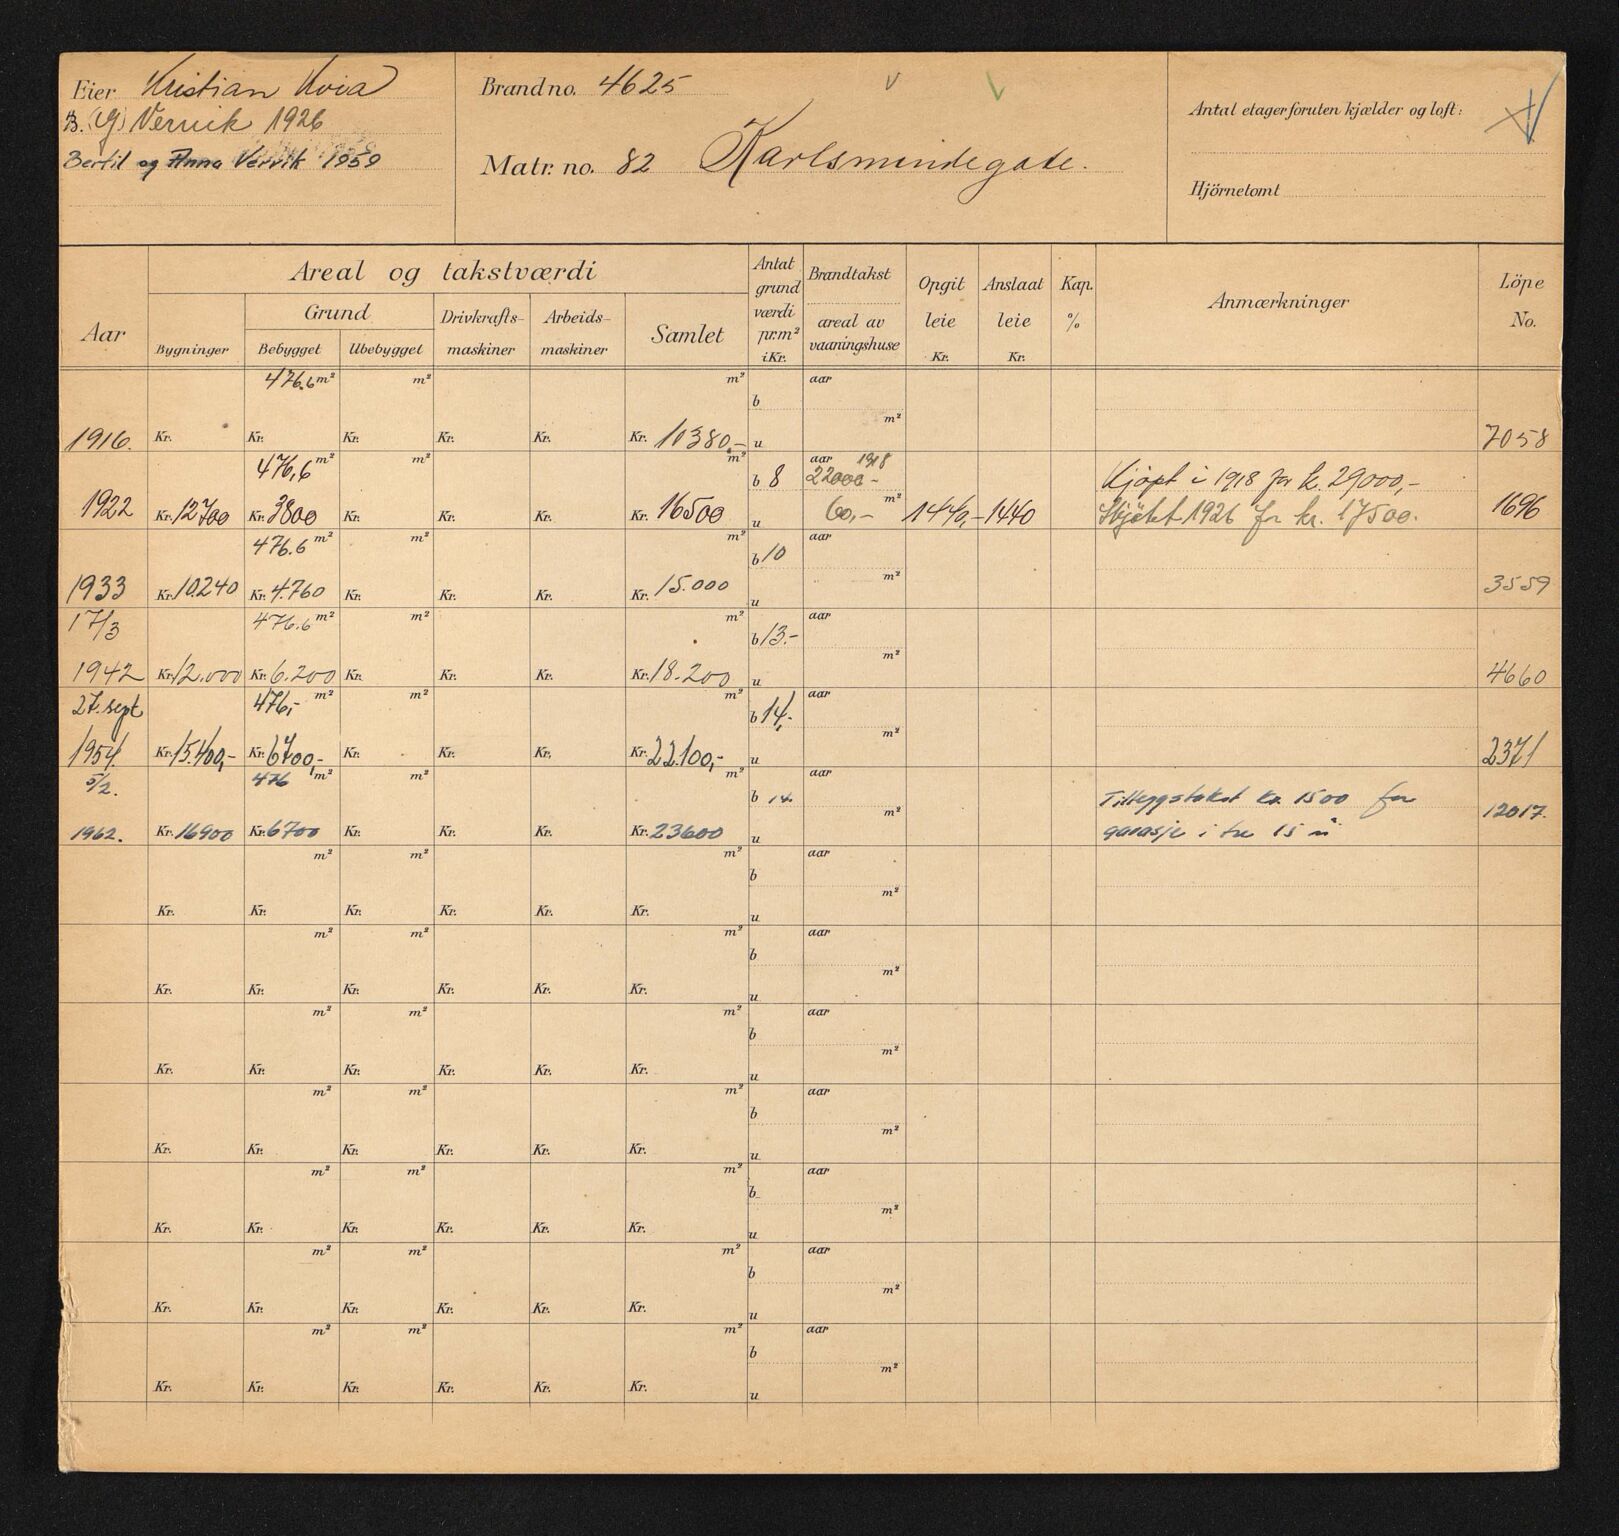 Eier Kristian Kvia
B. (G) Vervik 1926
Bertil og Anna Vervik 1959
Brandno. 4625
Matr. no. 82 Karlsmindegate.
Antal etager foruten kjælder og loft:
Hjörnetomt
Aar
Areal og takstværdi
Bygninger
Grund
Bebygget Ubebygget
Drivkrafts-
maskiner
Arbeids-
maskiner
Samlet
Antat
grund
værdi
pr. m²
i Kr.
Brandtakst
areal av
vaaningshuse
Opgit
leie
Kr.
Anslaat
leie
Kr.
Kap.
%
Anmærkninger
Löpe
No.
476.6 m² m² m² aar
b
m²
1916. Kr. Kr. Kr. Kr. Kr. Kr. 10380,- u 7058
476,6 m² m² m² aar 1918
b 8 22000- Kjöpt i 1918 for kr. 29000,-
m²
1922 Kr. 12700 Kr. 3800 Kr. Kr. Kr. Kr. 16500 u 60,- 1440,- 1440 Skjötet 1926 for kr. 17500. 1696
476.6 m² m² m² aar
b 10
m²
1933 Kr. 10.240 Kr. 4.760 Kr. Kr. Kr. Kr. 15.000 u 3559
17/3 476.6 m² m² m² aar
b 13.-
m²
1942 Kr. 12.000 Kr. 6.200 Kr. Kr. Kr. Kr. 18.200 u 4660
27. sept 476,- m² m² m² aar
b 14,-
m²
1954. Kr. 15.400,- Kr. 6700,- Kr. Kr. Kr. Kr. 22.100,- u 2371
5/2. 476 m² m² m² aar
b 14. Tilleggstakst kr. 1500 for
m² 12017.
1962. Kr. 16900 Kr. 6700 Kr. Kr. Kr. Kr. 23600 u garasje i tre 15 m²
m² m² m² aar
b
m²
Kr. Kr. Kr. Kr. Kr. Kr. u
m² m² m² aar
b
m²
Kr. Kr. Kr. Kr. Kr. Kr. u
m² m² m² aar
b
m²
Kr. Kr. Kr. Kr. Kr. Kr. u
m² m² m² aar
b
m²
Kr. Kr. Kr. Kr. Kr. Kr. u
m² m² m² aar
b
m²
Kr. Kr. Kr. Kr. Kr. Kr. u
m² m² m² aar
b
m²
Kr. Kr. Kr. Kr. Kr. Kr. u
m² m² m² aar
b
m²
Kr. Kr. Kr. Kr. Kr. Kr. u